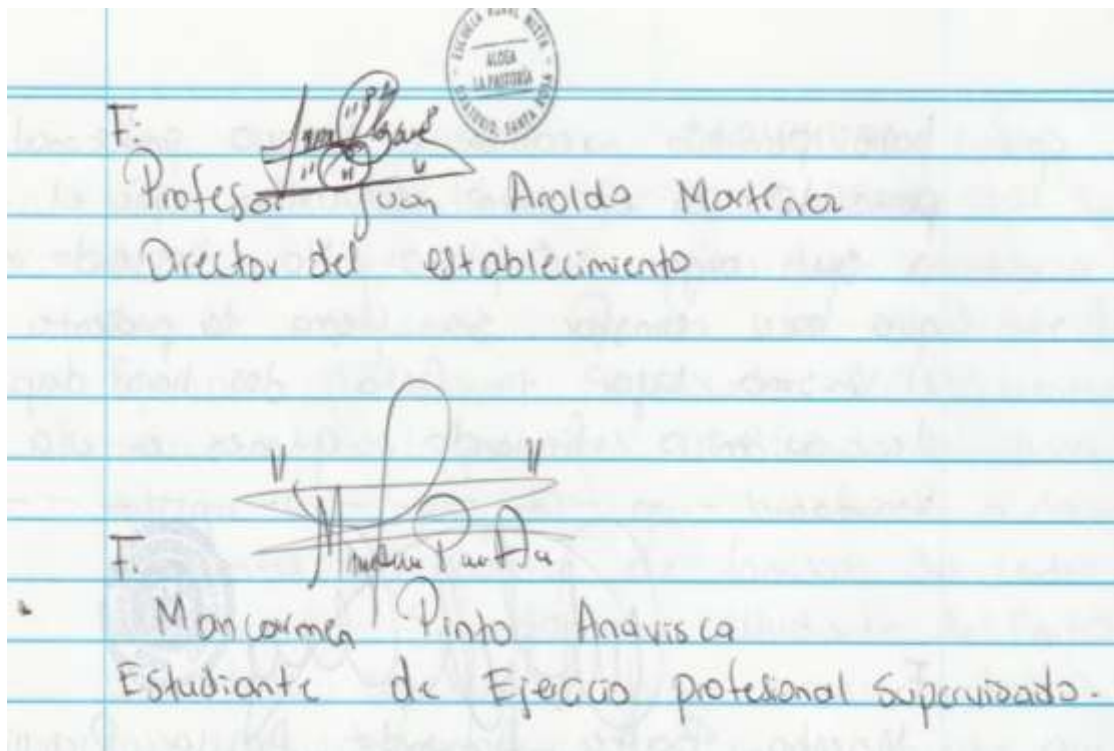 ESCUELA RURAL MIXTA
ALDEA
ORATORIO, SANTA ROSA
F.
Profesor Juan Aroldo Martínez
Director del establecimiento
F.
Maricarmen Pinto
Estudiante de Ejercicio profesional Supervisado.